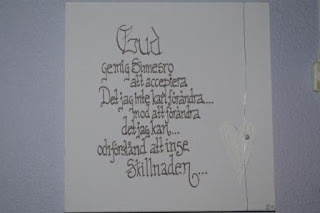 Gud
ge mig Sinnesro
att acceptera
Det jag inte kan förändra...
mod att förändra
det jag kan...
och förstånd att inse
Skillnaden...